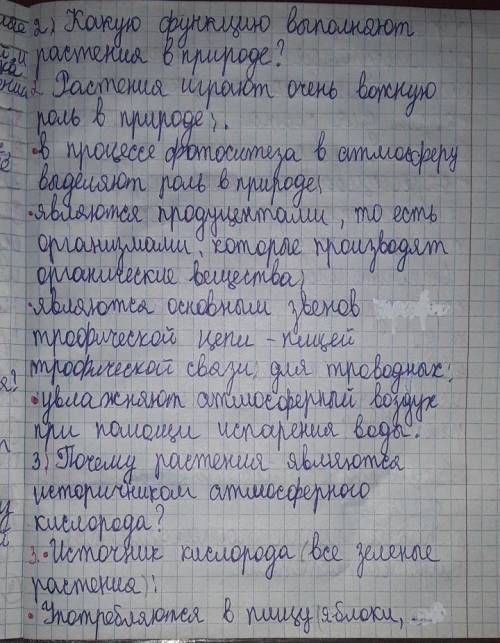 2) Какую функцию выполняют
растения в природе?
2. Растения играют очень важную
роль в природе:.
•в процессе фотоситеза в атмосферу
выделяют роль в природе;
•являются продуцентами, то есть
организмами, которые производят
органические вещества;
•являются основным звенов
трофической цепи - пищей
трофической связи; для троводных;
•увлажняют атмосферный воздух
при помощи испарения воды.
3) Почему растения являются
историчником атмосферного
кислорода?
3.•Источник кислорода (все зеленые
растения);
•Употребляются в пищу (яблоки,